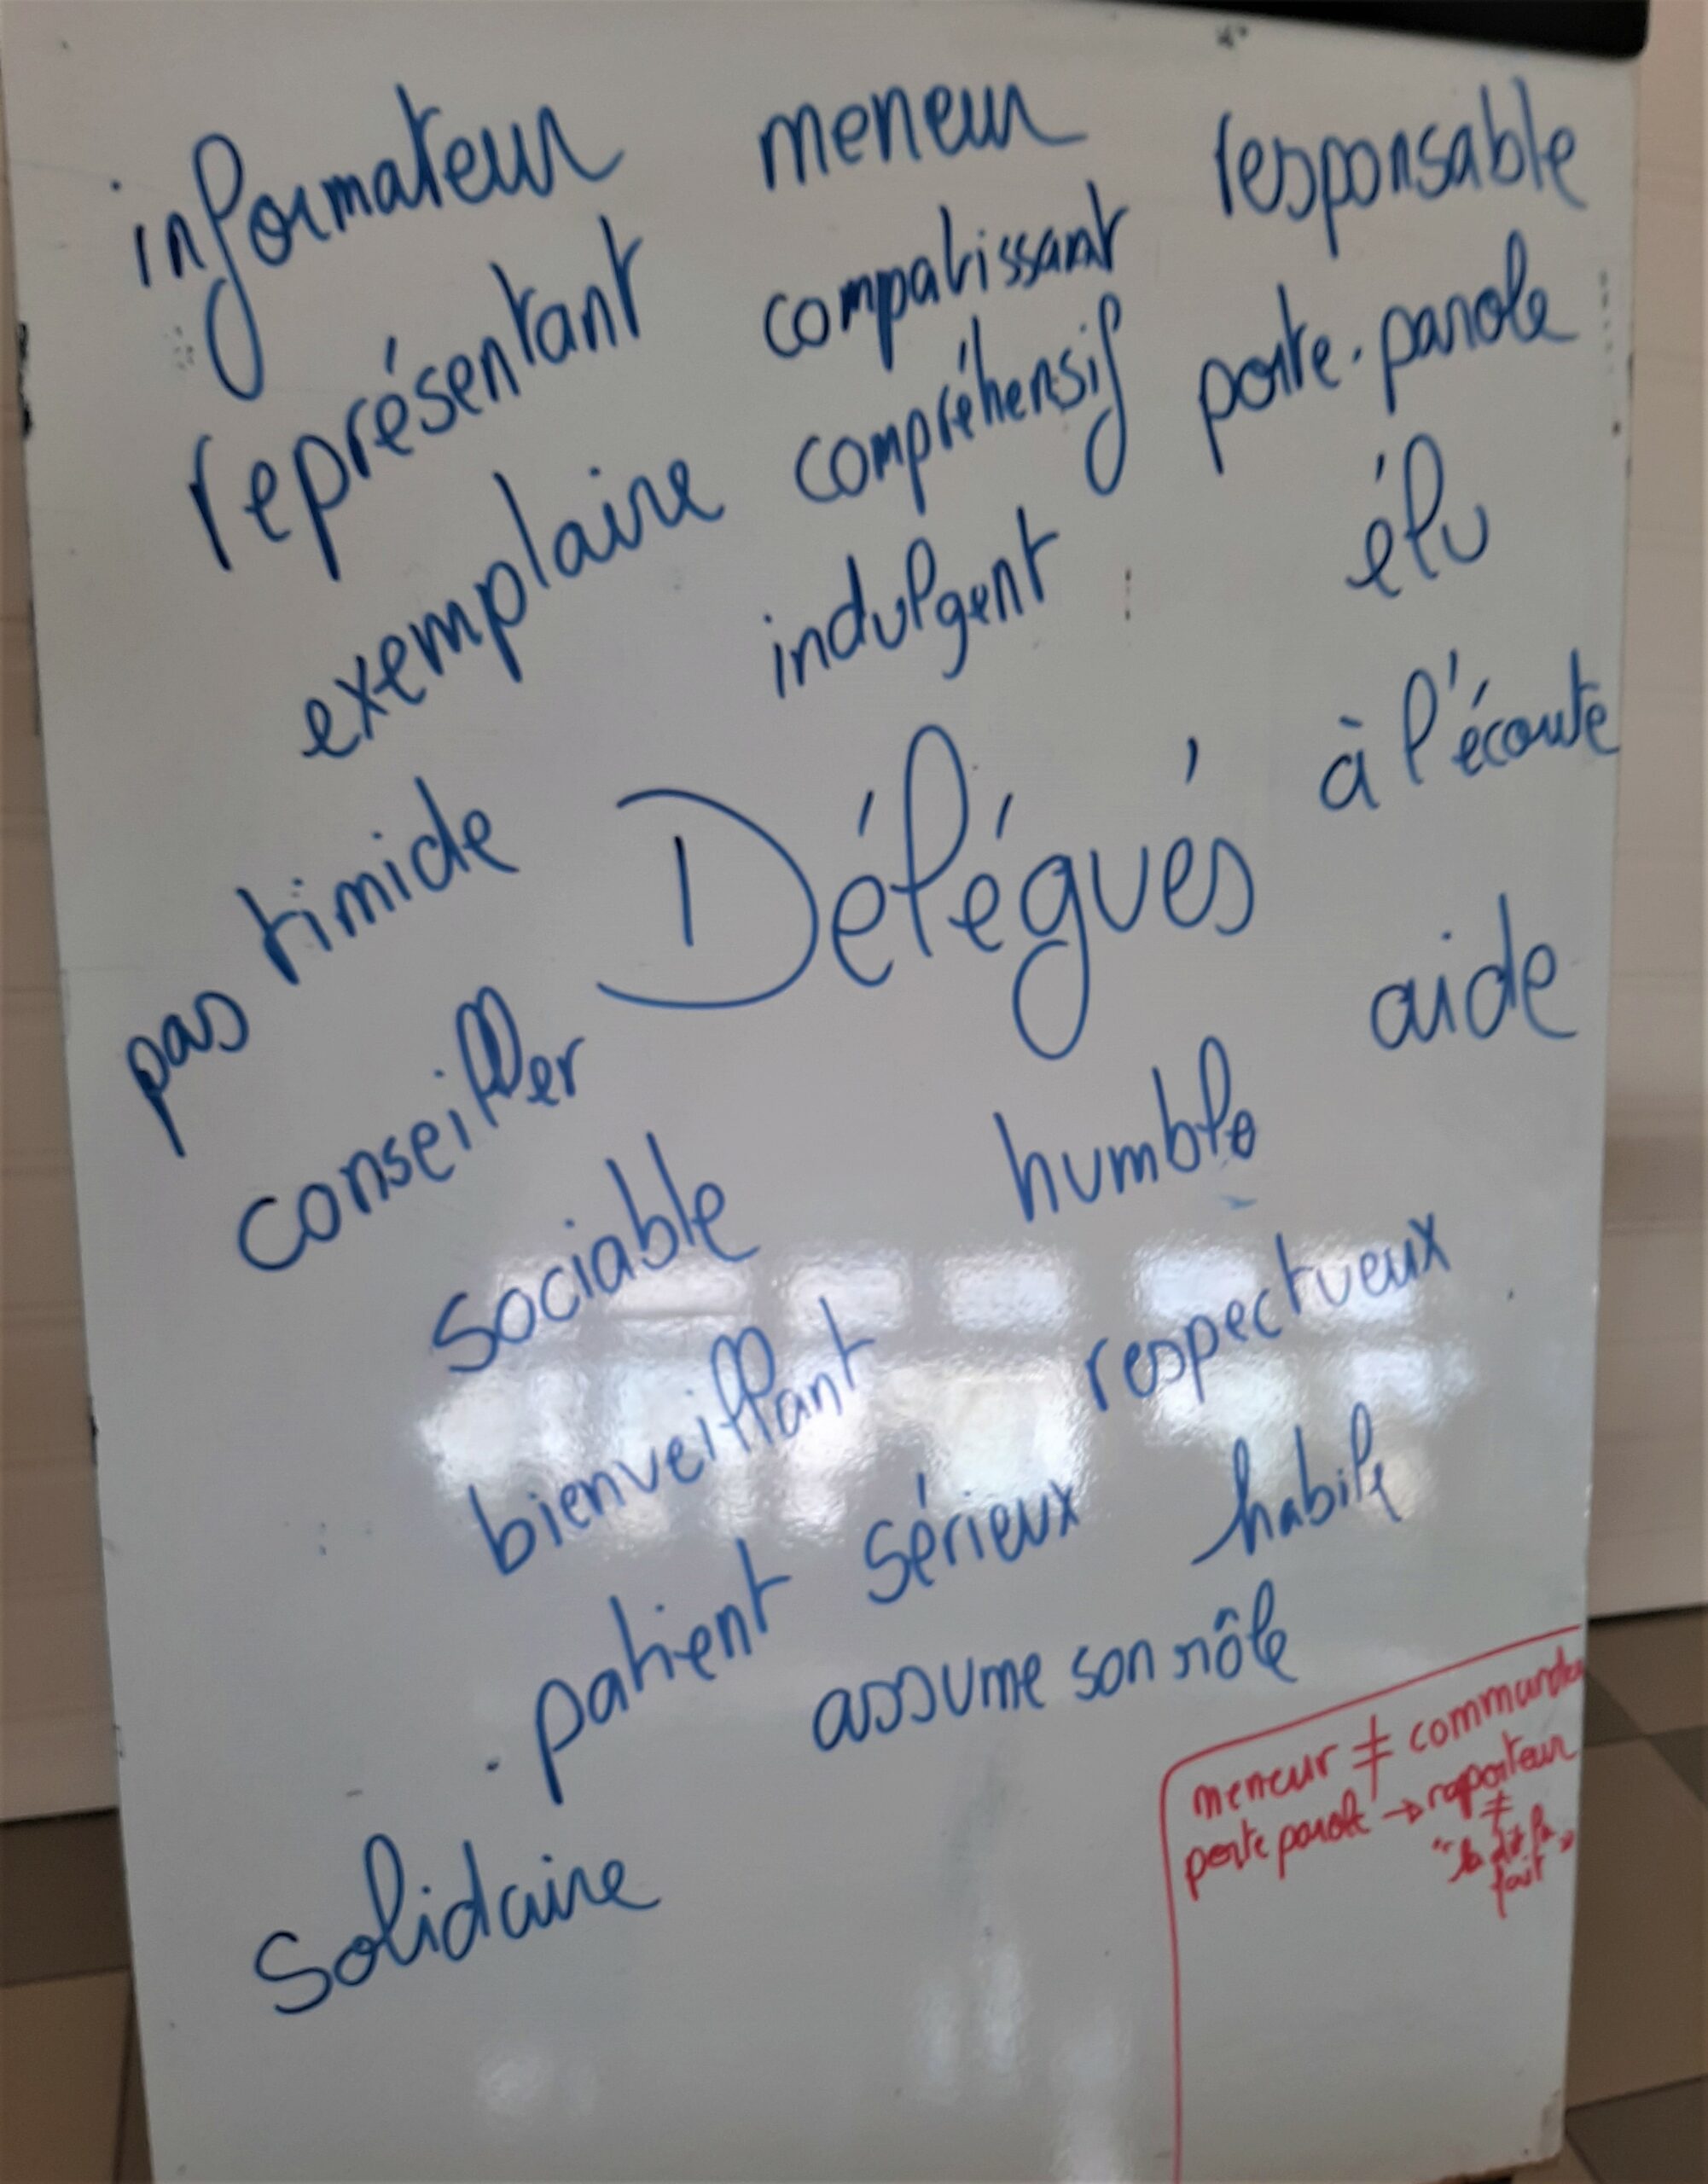 informateur meneur responsable
représentant compatissant porte-parole
exemplaire compréhensif élu
indulgent
pas timide Délégués à l'écoute
conseiller aide
sociable humble
bienveillant respectueux
patient sérieux habile
assume son rôle
solidaire
meneur ≠ commander
porte parole → raporteur
≠
"la dit la
fait"